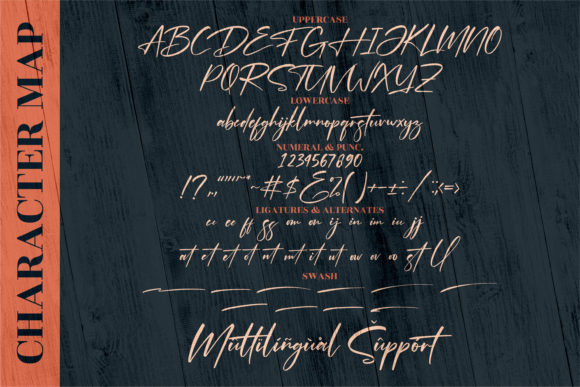 CHARACTER MAP
UPPERCASE
ABCDEFGHIJKLMNO
PQRSTUVWXYZ
LOWERCASE
abcdefghijklmnopqrstuvwxyz
NUMERAL & PUNC.
1234567890
!?.,"""'"~#$&%()+-±÷/:;<=>
LIGATURES & ALTERNATES
cc ee ff ss om on ij in im iu jj
at et ct ot nt mt it ut ow ov oo st ll
SWASH
Múltílíñgùàl Šûppört